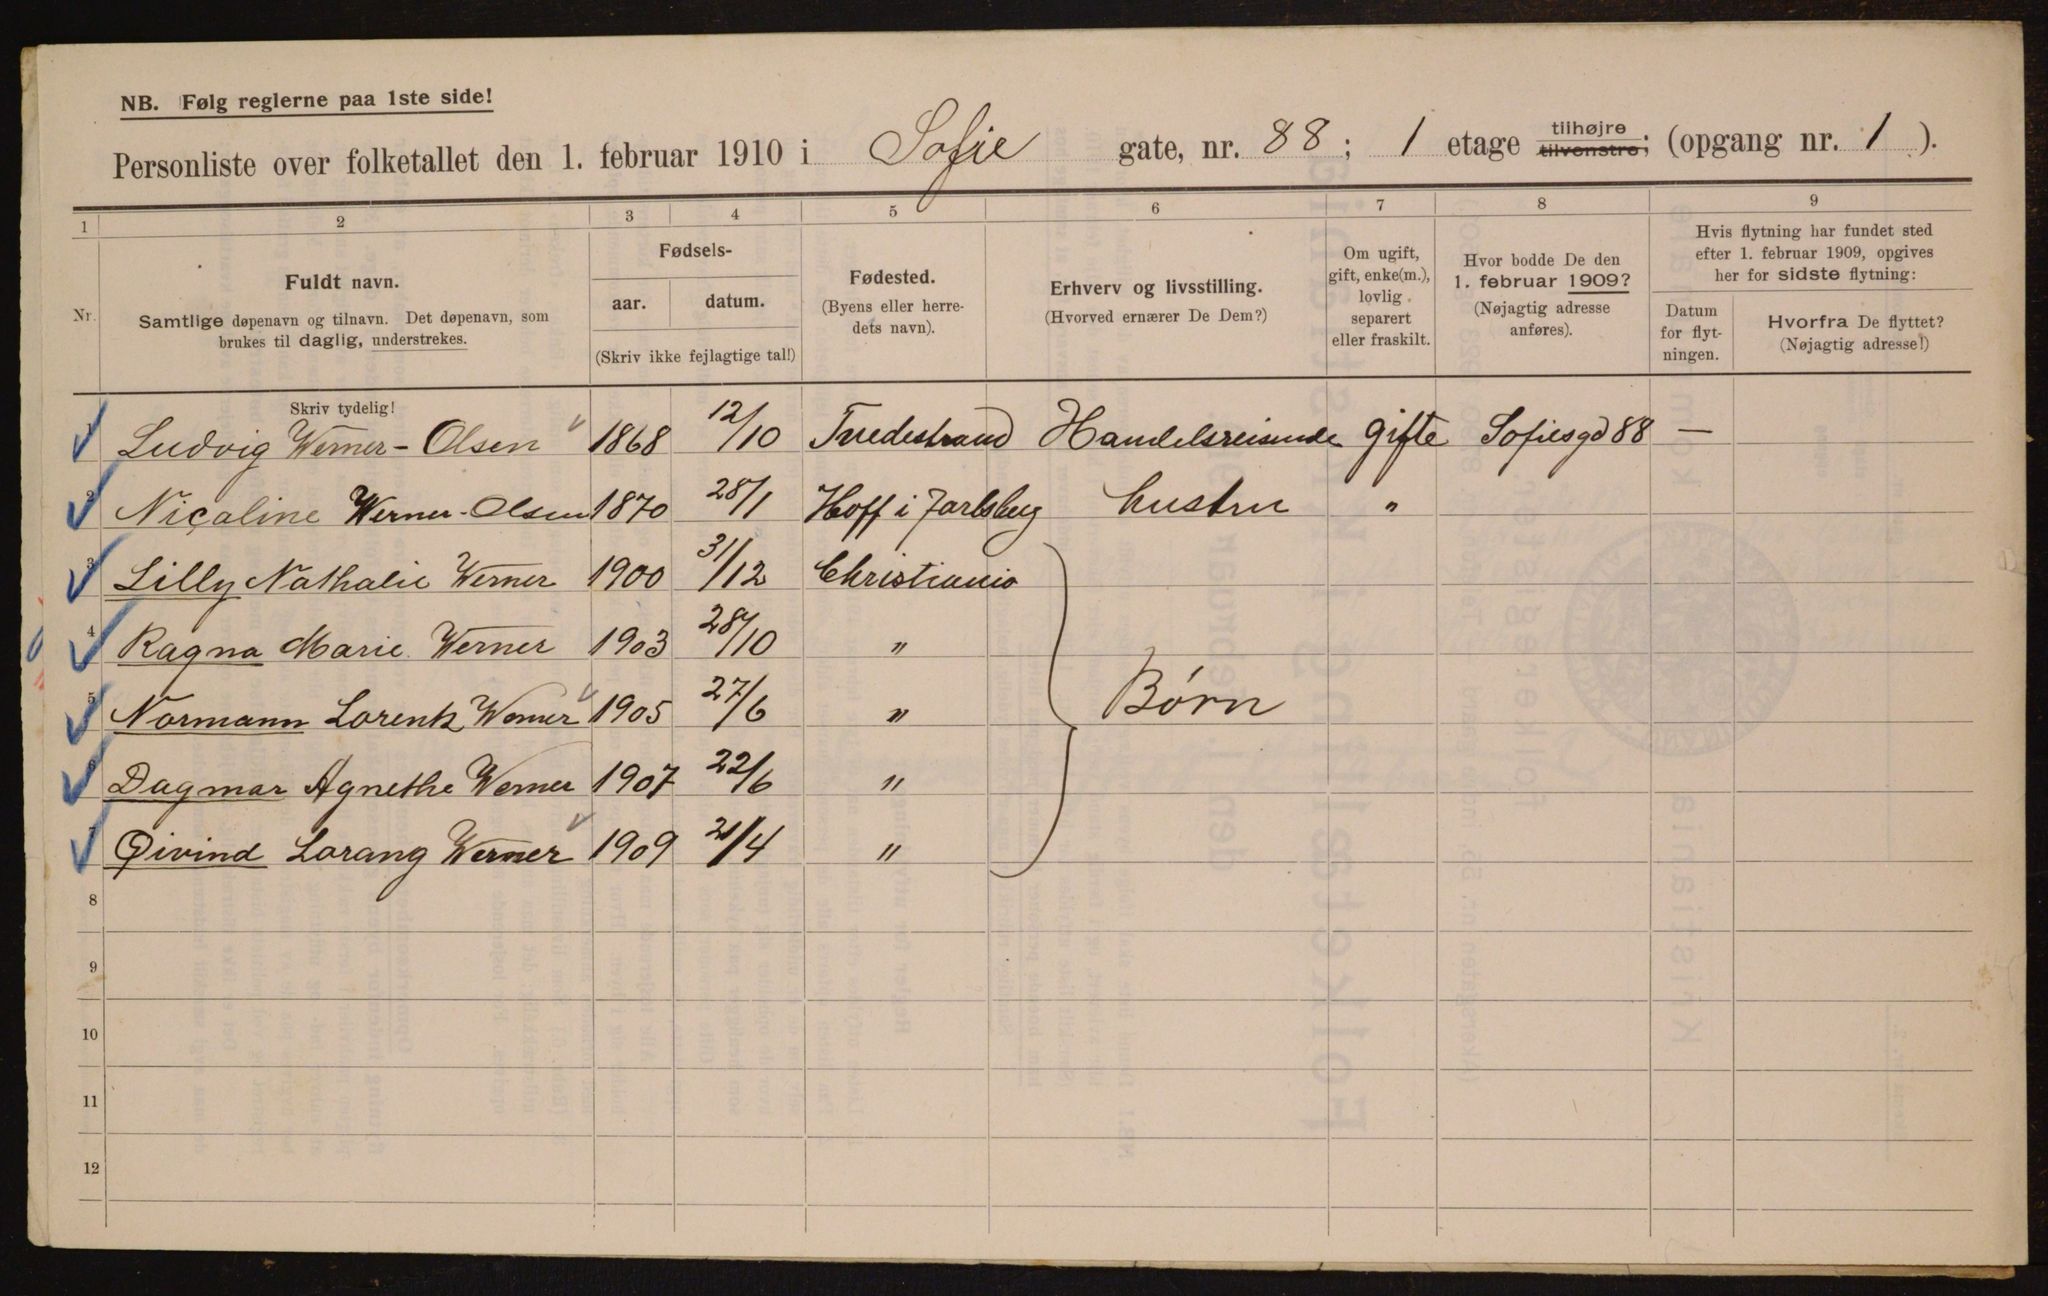 NB. Følg reglerne paa 1ste side!
Personliste over folketallet den 1. februar 1910 i Sofie gate, nr. 88; 1 etage tilhøjre tilvenstre; (opgang nr. 1).
1 2 3 4 5 6 7 8 9
Nr.
Fuldt navn.
Samtlige døpenavn og tilnavn. Det døpenavn, som
brukes til daglig, understrekes.
Fødsels-
aar. datum.
(Skriv ikke fejlagtige tal!)
Fødested.
(Byens eller herre-
dets navn).
Erhverv og livsstilling.
(Hvorved ernærer De Dem?)
Om ugift,
gift, enke(m.),
lovlig
separert
eller fraskilt.
Hvor bodde De den
1. februar 1909?
(Nøjagtig adresse
anføres).
Hvis flytning har fundet sted
efter 1. februar 1909, opgives
her for sidste flytning:
Datum
for flyt-
ningen.
Hvorfra De flyttet?
(Nøjagtig adresse!)
Skriv tydelig!
1 Ludvig Werner-Olsen 1868 12/10 Tvedestrand Handelsreisende gifte Sofiesgd 88 —
2 Nicaline Werner-Olsen 1870 28/1 Hoff i Jarlsberg hustru "
3 Lilly Nathalie Werner 1900 31/12 Christiania
4 Ragna Marie Werner 1903 28/10 "
5 Normann Lorentz Werner 1905 27/6 " Børn
6 Dagmar Agnethe Werner 1907 22/6 "
7 Øivind Lorang Werner 1909 21/4 "
8
9
10
11
12